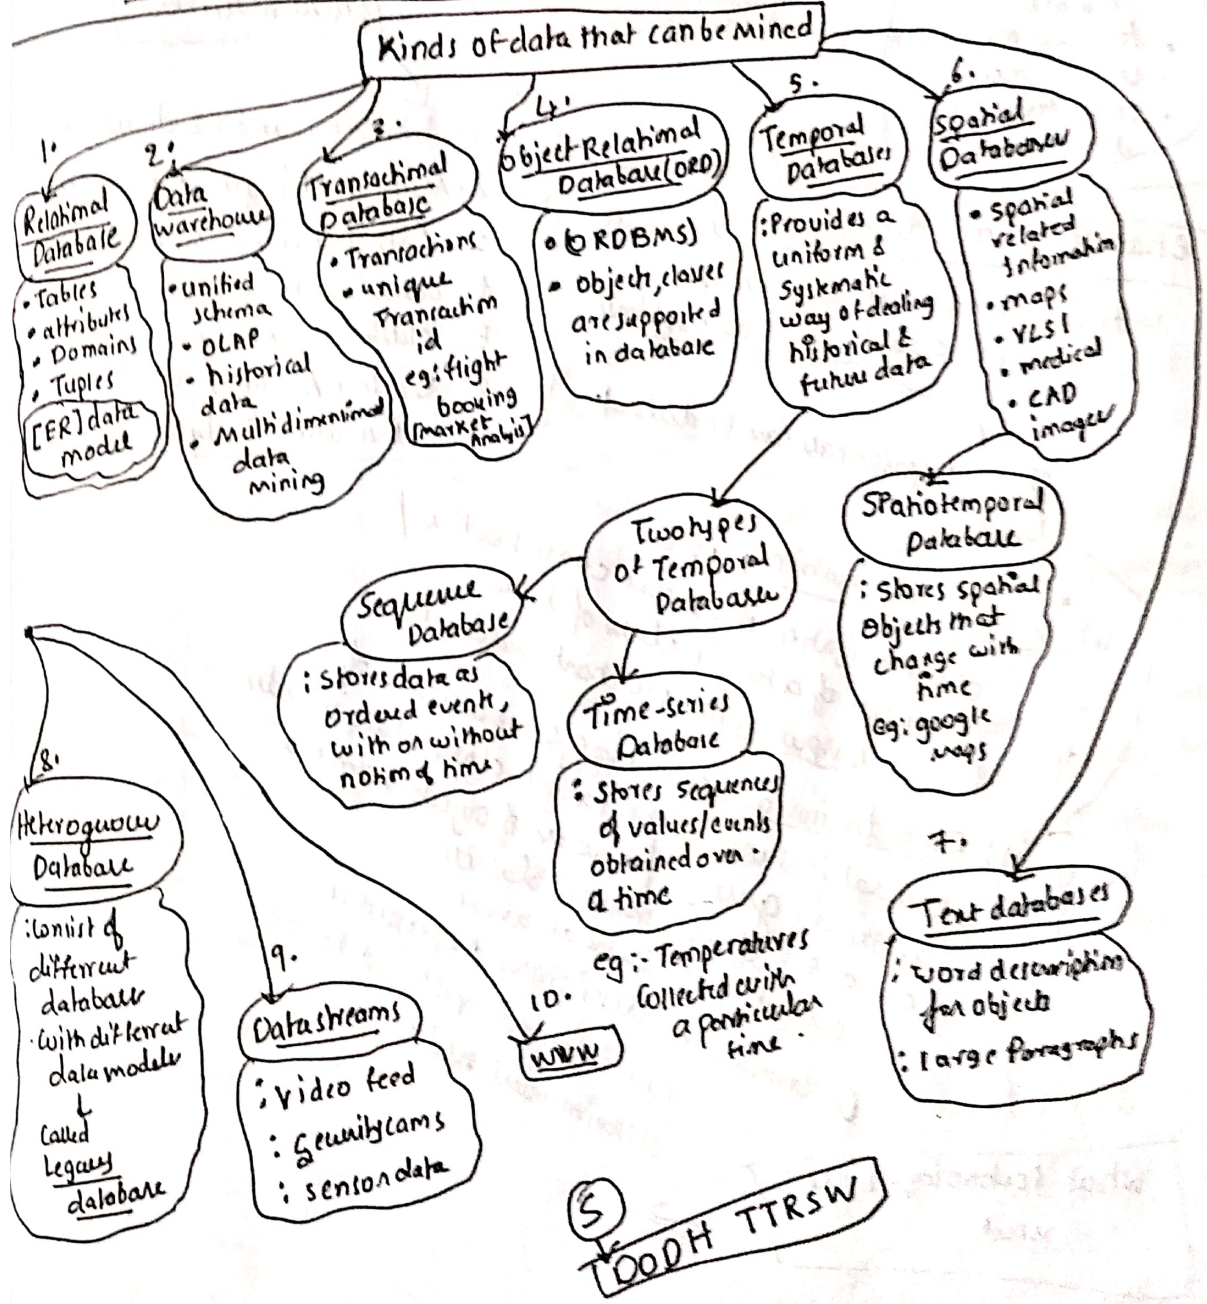 Kinds of data that can be mined
1.
Relational
Database
• Tables
• attributes
• Domains
• Tuples
[ER] data
model
2.
Data
warehouse
• unified
schema
• OLAP
• historical
data
• Multidimensional
data
mining
3.
Transactional
Database
• Transactions
• unique
Transaction
id
eg: flight
booking
[market
Analysis]
4.
Object Relational
Database (ORD)
• (ORDBMS)
• objects, classes
are supported
in database
5.
Temporal
Databases
: Provides a
uniform &
systematic
way of dealing
historical &
future data
6.
Spatial
Databases
• spatial
related
Information
• maps
• VLSI
• medical
• CAD
images
Two types
of Temporal
Databases
Sequence
Database
: stores data as
ordered events,
with or without
notion of time
Time-series
Database
: stores sequences
of values/events
obtained over
a time
eg :- Temperatures
collected with
a particular
time.
Spatiotemporal
Database
: stores spatial
objects that
change with
time
eg: google
maps
7.
Text databases
: word description
for objects
: large paragraphs
8.
Heterogenous
Database
: consist of
different
databases
• with different
data models
↓
called
Legacy
database
9.
Data streams
: video feed
: security cams
: sensor data
10.
www
S
TDODH TTRSW